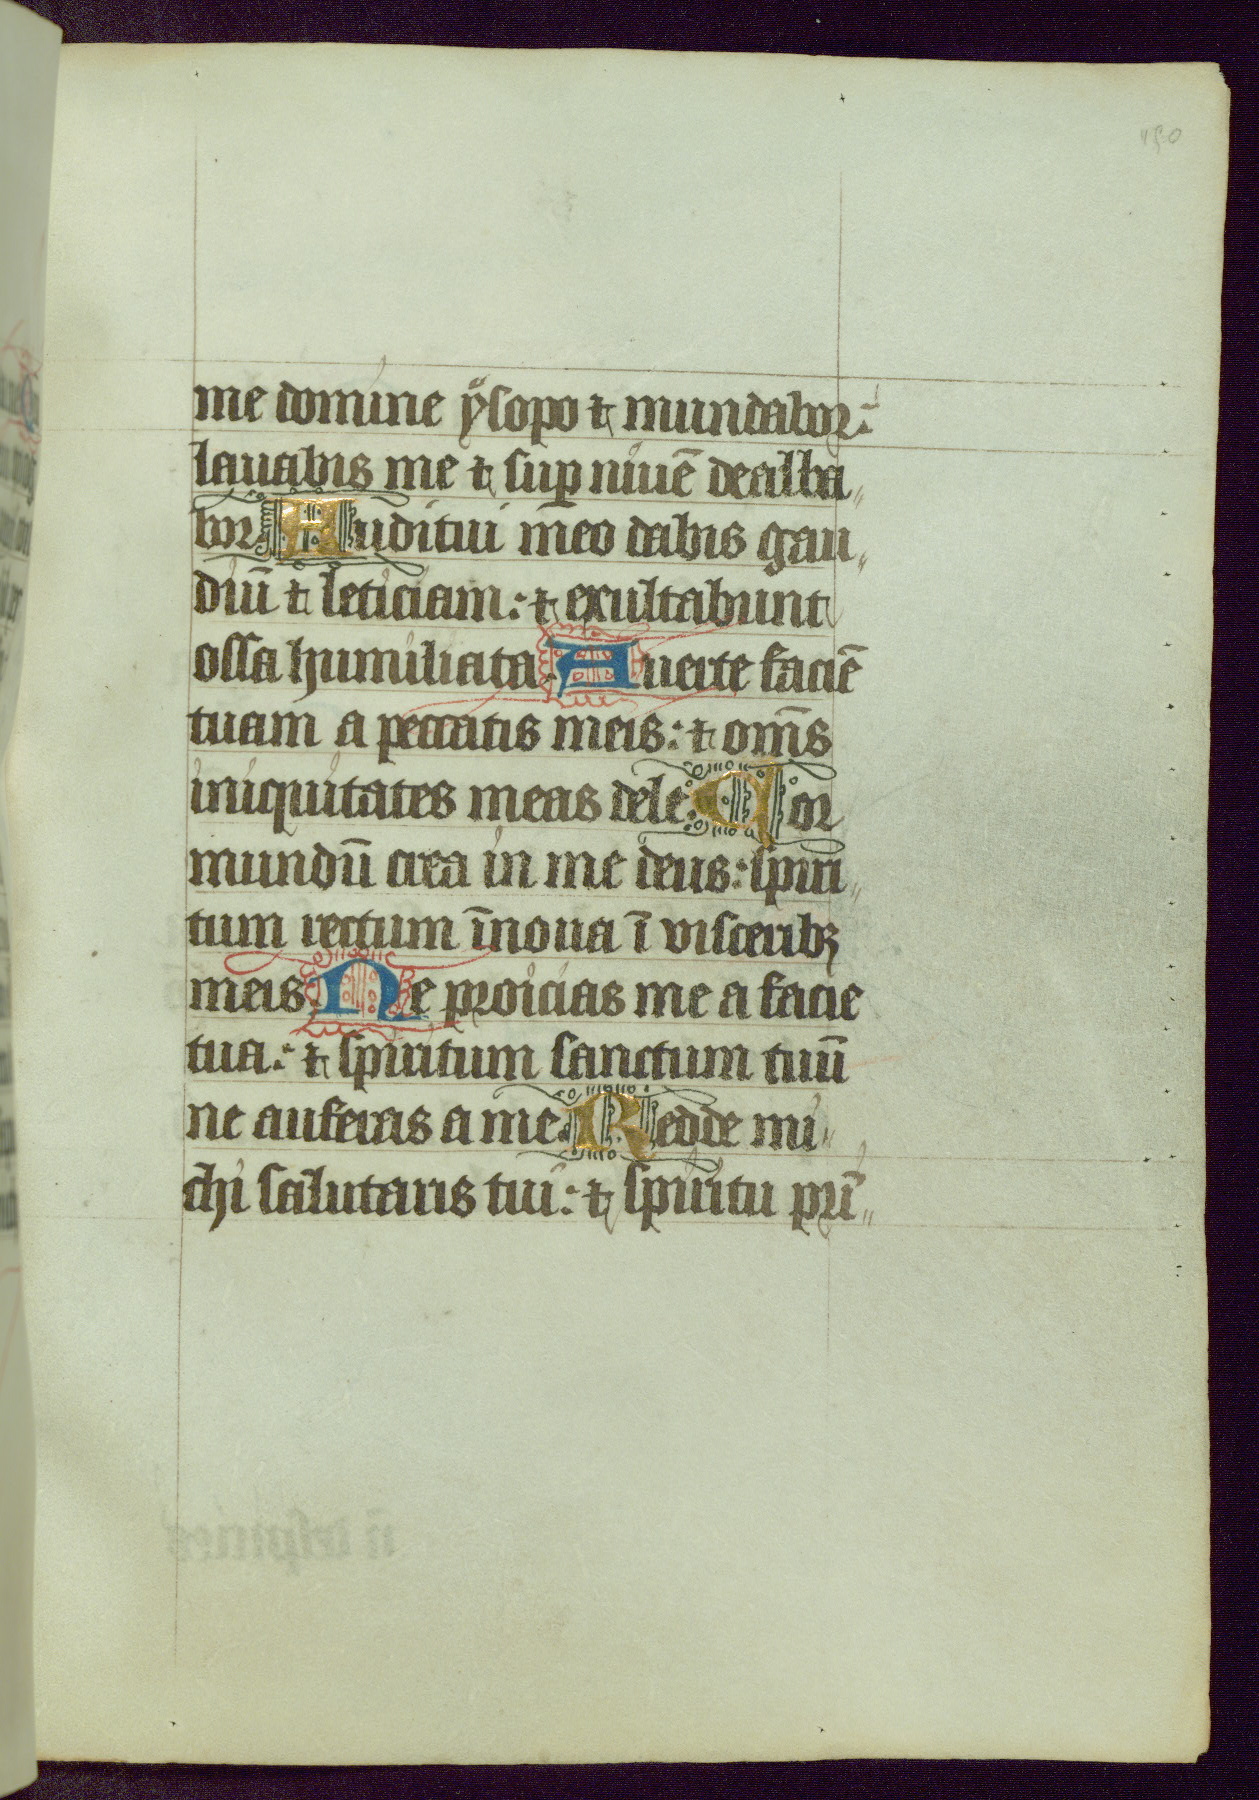 150
me domine ysopo ⁊ mundabor:
lauabis me ⁊ suꝑ niuē dealba„
bor. Auditui meo dabis gau„
diū ⁊ leticiam: ⁊ exultabunt
ossa humiliata. Auerte faciē
tuam a peccatis meis: ⁊ om̄s
iniquitates meas dele. Cor
mundū crea in me deus: spiri„
tum rectum īnoua ī visceribꝫ
meis. Ne proicias me a facie
tua: ⁊ spiritum sanctum tuū
ne auferas a me. Redde mi„
chi salutaris tui: ⁊ spiritu pri̅„